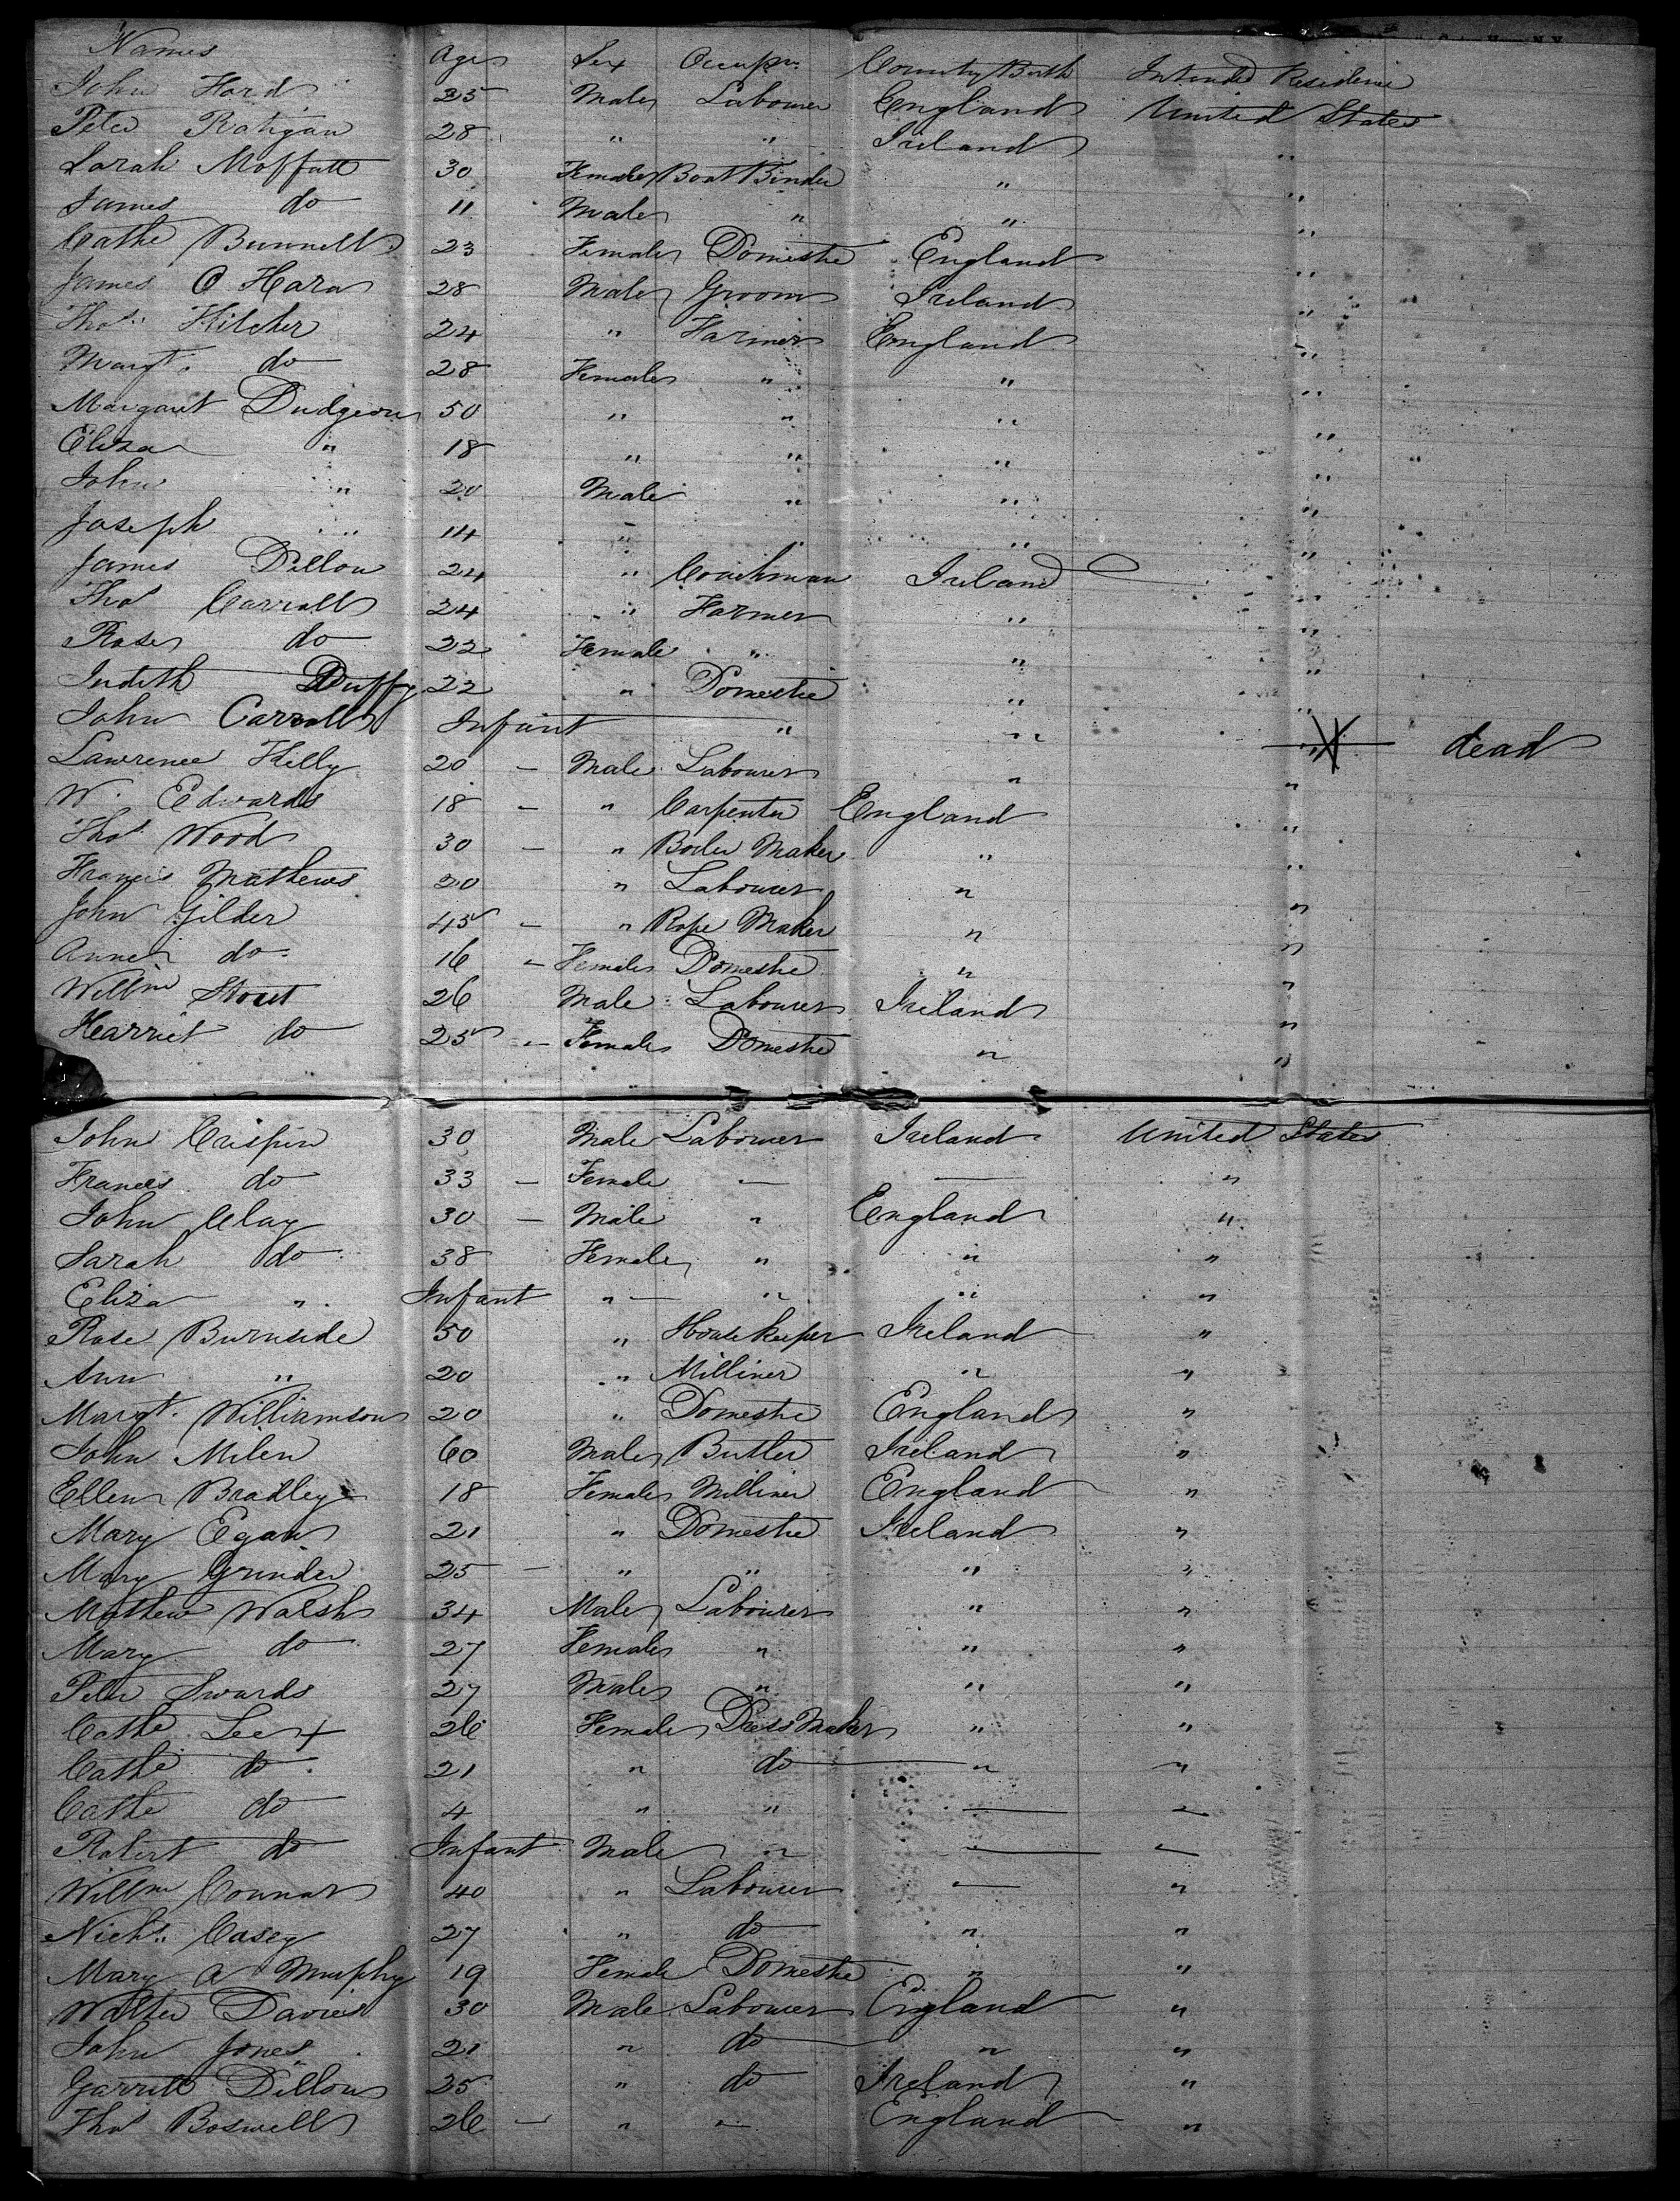 Names Age Sex Occupn. Country Birth Intended Residence
John Hard 25 Male Labourer England United States
Peter Ratigan 28 " " Ireland "
Sarah Moffatt 30 Female Boot Binder " "
James do 11 Male " " "
Cathe Bunnell 23 Female Domestic England "
James O Hara 28 Male Groom Ireland "
Thos. Hilcher 24 " Farmer England "
Margt. do 28 Female " " "
Margaret Dudgeon 50 " " " "
Eliza " 18 " " " "
John " 20 Male " " "
Joseph " 14 " " " "
James Dillon 24 " Coachman Ireland "
Thos Carroll 24 " Farmer " "
Rose do 22 Female " " "
Judith Duffy 22 " Domestic " "
John Carroll Infant " " " dead
Lawrence Killy 20 - Male Labourer " "
W. Edwards 18 - " Carpenter England "
Thos Wood 30 - " Boiler Maker " "
Francis Mathews 20 " Labourer " "
John Gilder 45 - " Rope Maker " "
Anne do. 16 - Female Domestic " "
Willm Stout 26 Male Labourer Ireland "
Hearriet do 25 - Female Domestic " "
John Crispin 30 Male Labourer Ireland United States
Frances do 33 - Female - - "
John Clay 30 - Male " England "
Sarah do 38 Female " " "
Eliza " Infant " " " "
Rose Burnside 50 " House Keeper Ireland "
Ann " 20 " Milliner " "
Margt. Williamson 20 " Domestic England "
John Milen 60 Male Butler Ireland "
Ellen Bradley 18 Female Milliner England "
Mary Egan 21 " Domestic Ireland "
Mary Grinder 25 - " " " "
Mathew Walsh 34 Male Labourer " "
Mary do 27 Female " " "
Peter Swards 27 Male " " "
Cathe Lee + 26 Female Dress Maker " "
Cathe do. 21 " do " "
Cathe do 4 " " - "
Robert do Infant Male " - -
Willm Connar 40 " Labourer - "
Nichs. Casey 27 " do " "
Mary A Murphy 19 Female Domestic " "
Walter Davies 30 Male Labourer England "
John Jones 21 " do " "
Garrett Dillon 25 " do Ireland "
Thos Boswell 26 - " - England "